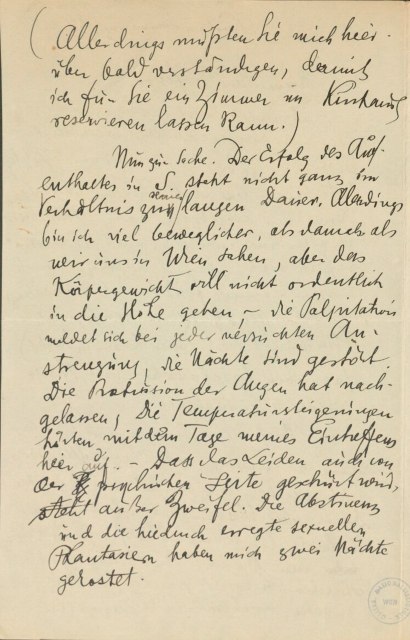 (Allerdings müßten Sie mich hier-
über bald verständigen, damit
ich für Sie ein Zimmer im Kurhaus
reservieren lassen kann.)
Nun zur Sache. Der Erfolg des Auf-
enthaltes in S. steht nicht ganz im
Verhältnis zur langen Dauer. Allerdings
bin ich viel beweglicher, als damals als
wir uns in Wien sahen, aber das
Körpergewicht will nicht ordentlich
in die Höhe gehen – die Palpitation
meldet sich bei jeder versuchten An-
strengung, die Nächte sind gestört.
Die Protrusion der Augen hat nach-
gelassen, die Temperatursteigerungen
hörten mit dem Tage meines Eintreffens
hier auf. – Dass das Leiden auch von
der psychischen Seite geschürt wird,
steht außer Zweifel. Die Abstinenz
und die hiedurch erregte sexuellen
Phantasien haben mich zwei Nächte
gekostet.
WIEN